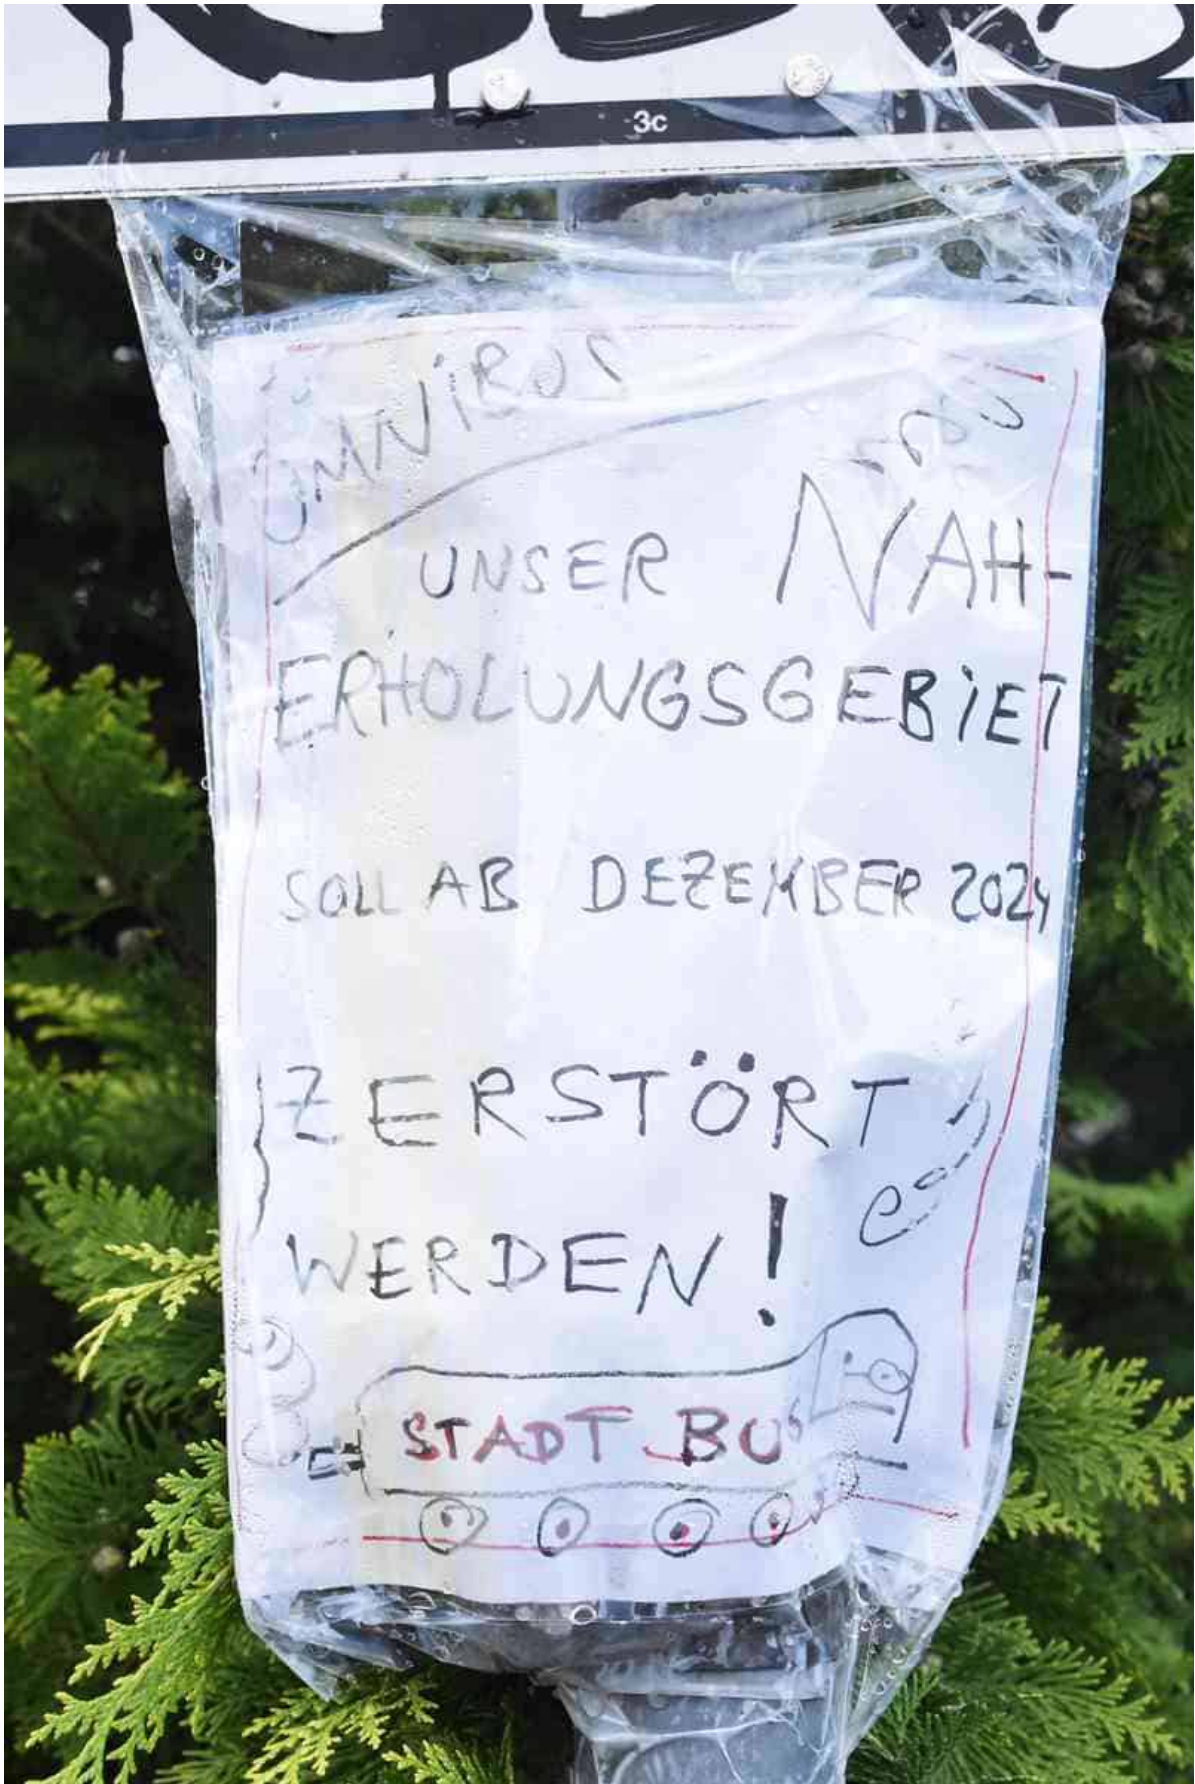 3c
OMNIBUS
UNSER NAH-
ERHOLUNGSGEBIET
SOLL AB DEZEMBER 2024
ZERSTÖRT
WERDEN!
STADT BUS